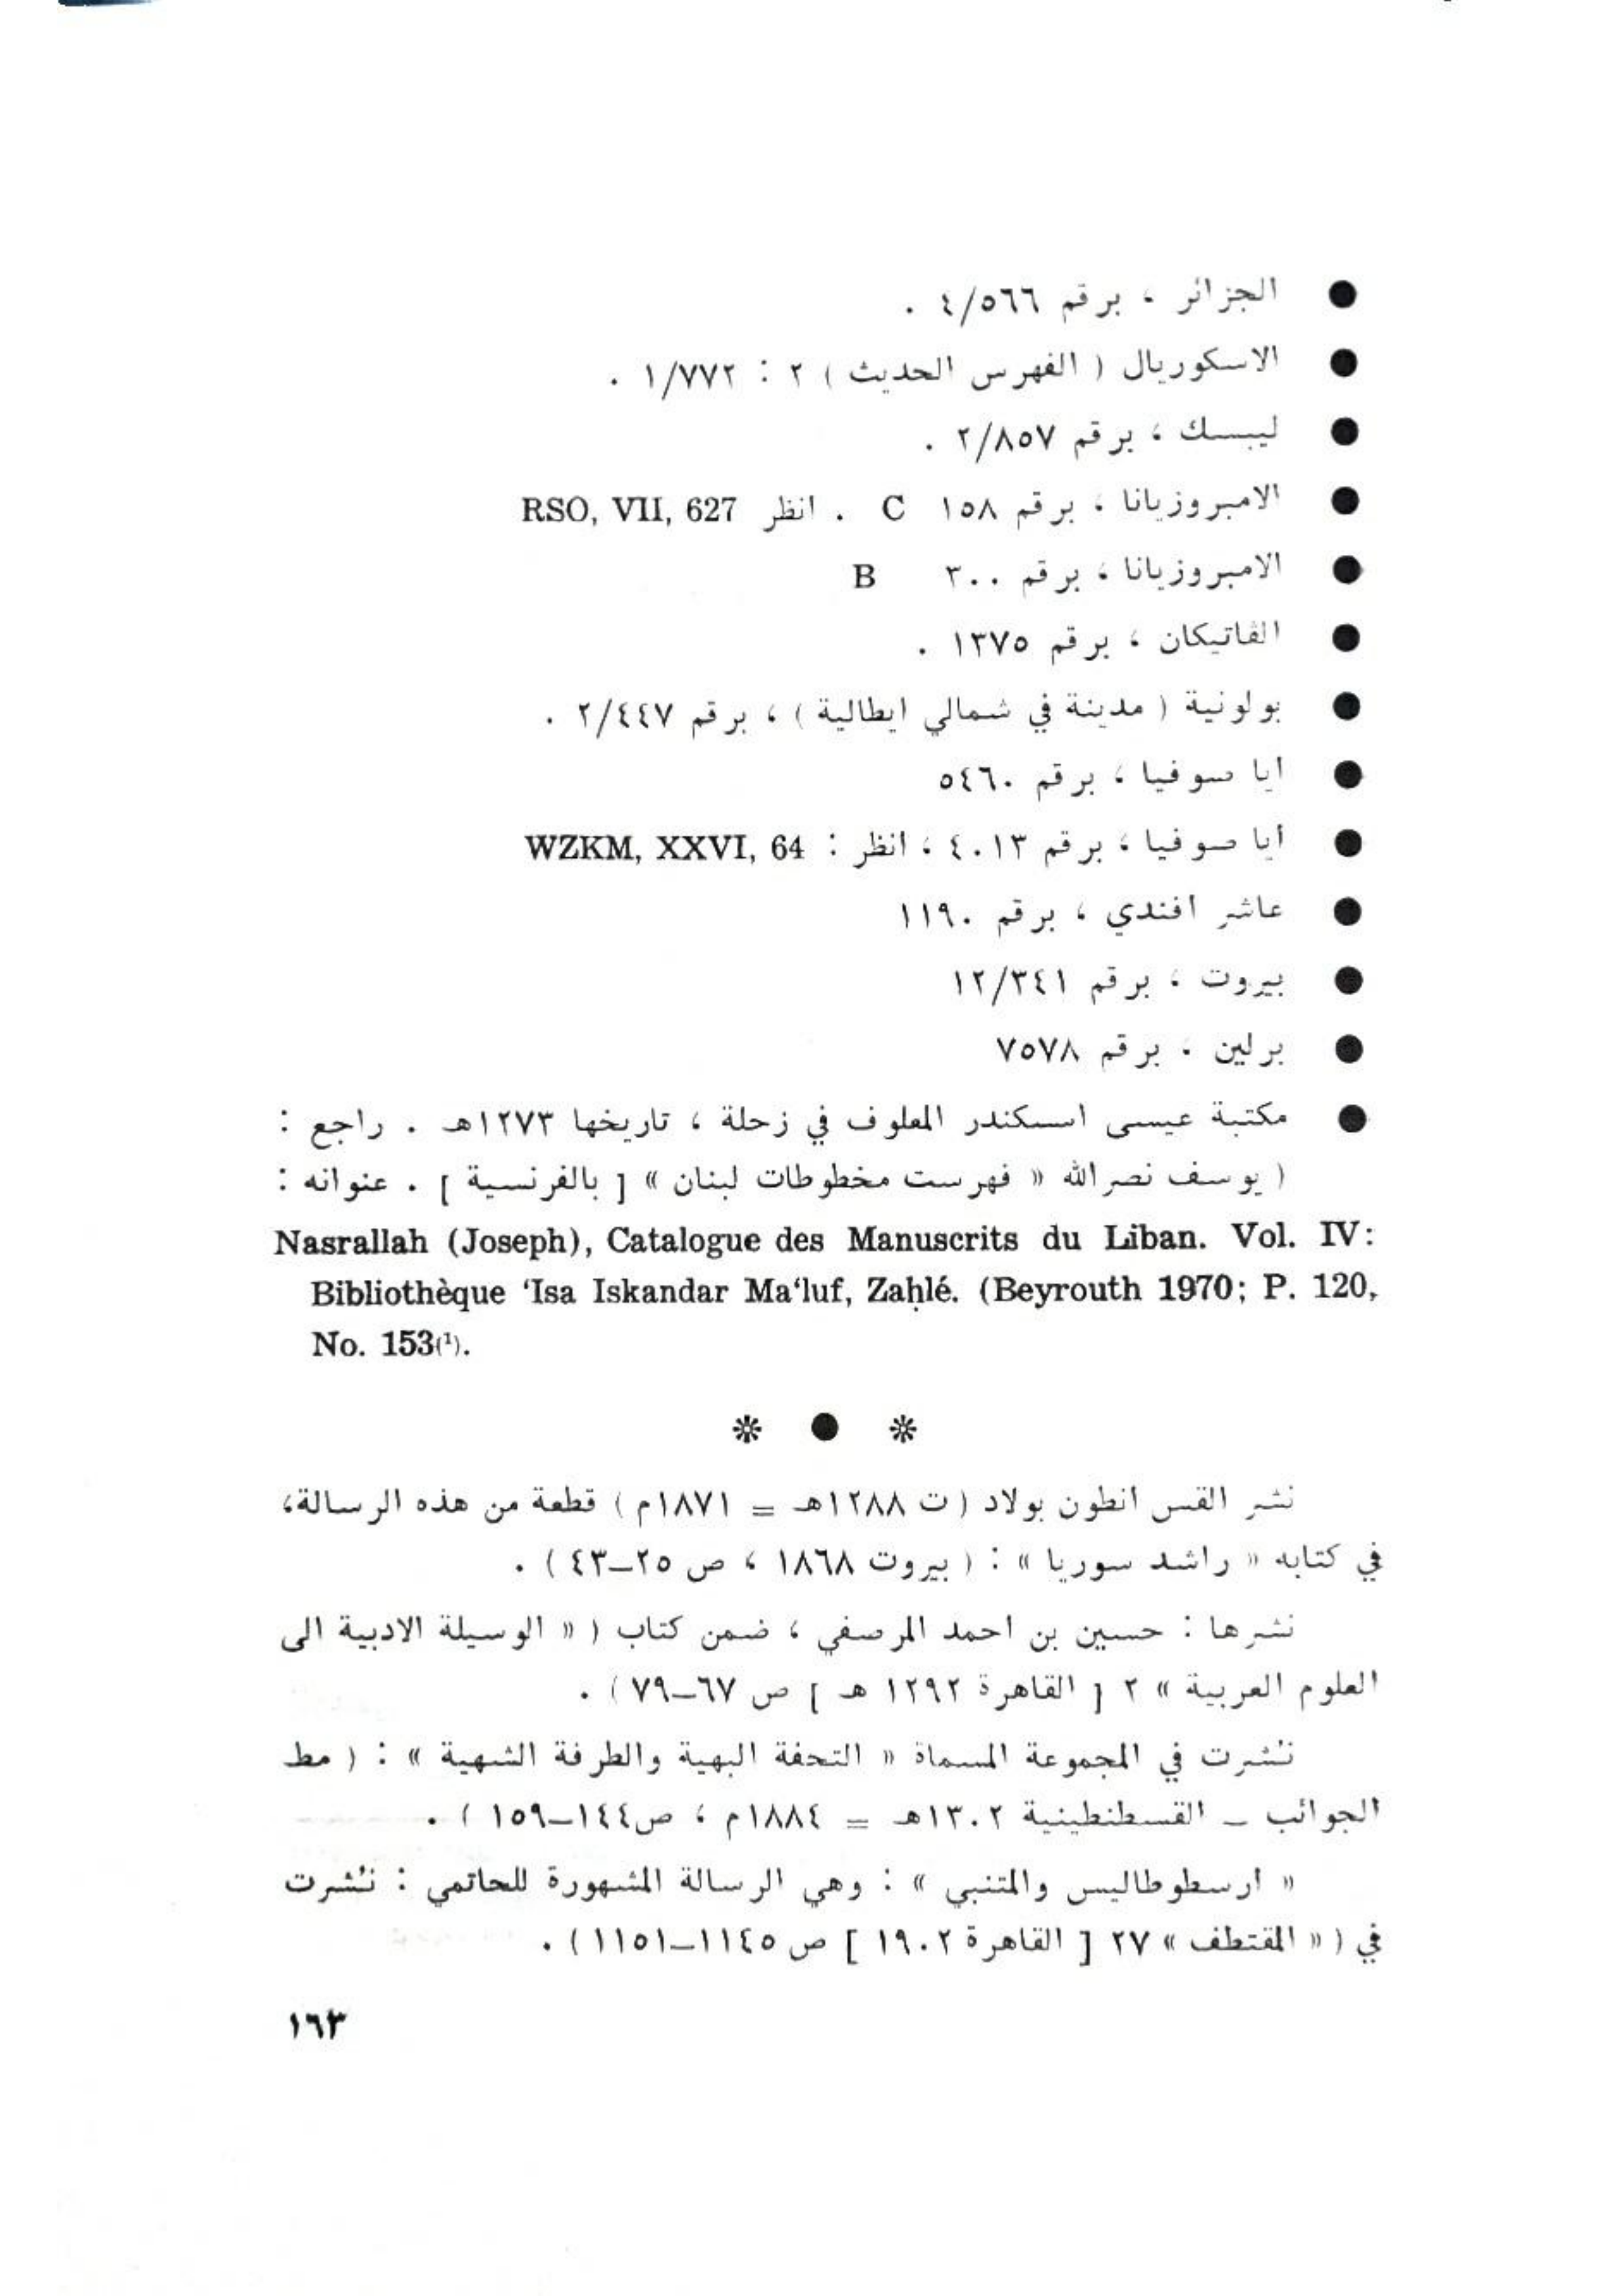 ● الجزائر ، برقم ٤/٥٦٦ .
● الاسكوريال ( الفهرس الحديث ) ٢ : ١/٧٧٢ .
● ليبسك ، برقم ٢/٨٥٧ .
● الامبروزيانا ، برقم ١٥٨ C . انظر RSO, VII, 627
● الامبروزيانا ، برقم ٣٠٠ B
● الڤاتيكان ، برقم ١٣٧٥ .
● بولونية ( مدينة في شمالي ايطالية ) ، برقم ٢/٤٤٧ .
● أيا صوفيا ، برقم ٥٤٦٠
● أيا صوفيا ، برقم ٤٠١٣ ، انظر : WZKM, XXVI, 64
● عاشر افندي ، برقم ١١٩٠
● بيروت ، برقم ١٢/٣٤١
● برلين ، برقم ٧٥٧٨
● مكتبة عيسى اسكندر المعلوف في زحلة ، تاريخها ١٢٧٣هـ . راجع :
( يوسف نصرالله « فهرست مخطوطات لبنان » [ بالفرنسية ] . عنوانه :
Nasrallah (Joseph), Catalogue des Manuscrits du Liban. Vol. IV:
Bibliothèque ‘Isa Iskandar Ma‘luf, Zaḥlé. (Beyrouth 1970; P. 120,
No. 153(¹).
* ● *
نشر القس انطون بولاد ( ت ١٢٨٨هـ = ١٨٧١م ) قطعة من هذه الرسالة،
في كتابه « راشد سوريا » : ( بيروت ١٨٦٨ ، ص ٢٥–٤٣ ) .
نشرها : حسين بن احمد المرصفي ، ضمن كتاب ( « الوسيلة الادبية الى
العلوم العربية » ٢ [ القاهرة ١٢٩٢ هـ ] ص ٦٧–٧٩ ) .
نُشرت في المجموعة المسماة « التحفة البهية والطرفة الشهية » : ( مط
الجوائب – القسطنطينية ١٣٠٢هـ = ١٨٨٤م ، ص١٤٤–١٥٩ ) .
« ارسطوطاليس والمتنبي » : وهي الرسالة المشهورة للحاتمي : نُشرت
في ( « المقتطف » ٢٧ [ القاهرة ١٩٠٢ ] ص ١١٤٥–١١٥١ ) .
١٦٣